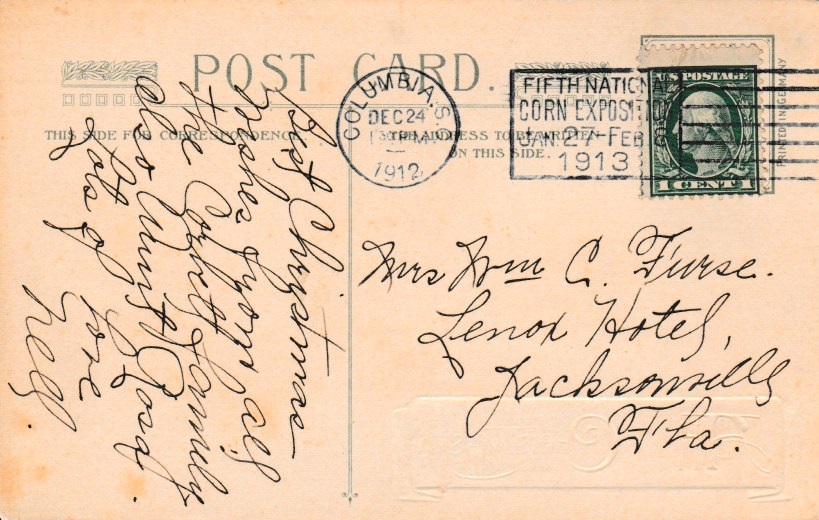 POST CARD.
THIS SIDE FOR CORRESPONDENCE
THE ADDRESS TO BE WRITTEN
ON THIS SIDE.
COLUMBIA, S.
DEC 24
PM
1912
FIFTH NATIONAL
CORN EXPOSITIO
JAN. 27-FEB. 8
1913
U.S. POSTAGE
1 CENT 1
PRINTED IN GERMANY
Best Christmas
wishes from all
the Corbett family
also Aunt Rosa.
Lots of love
Nell.
Mrs Wm C. Furse.
Lenox Hotel,
Jacksonville
Fla.